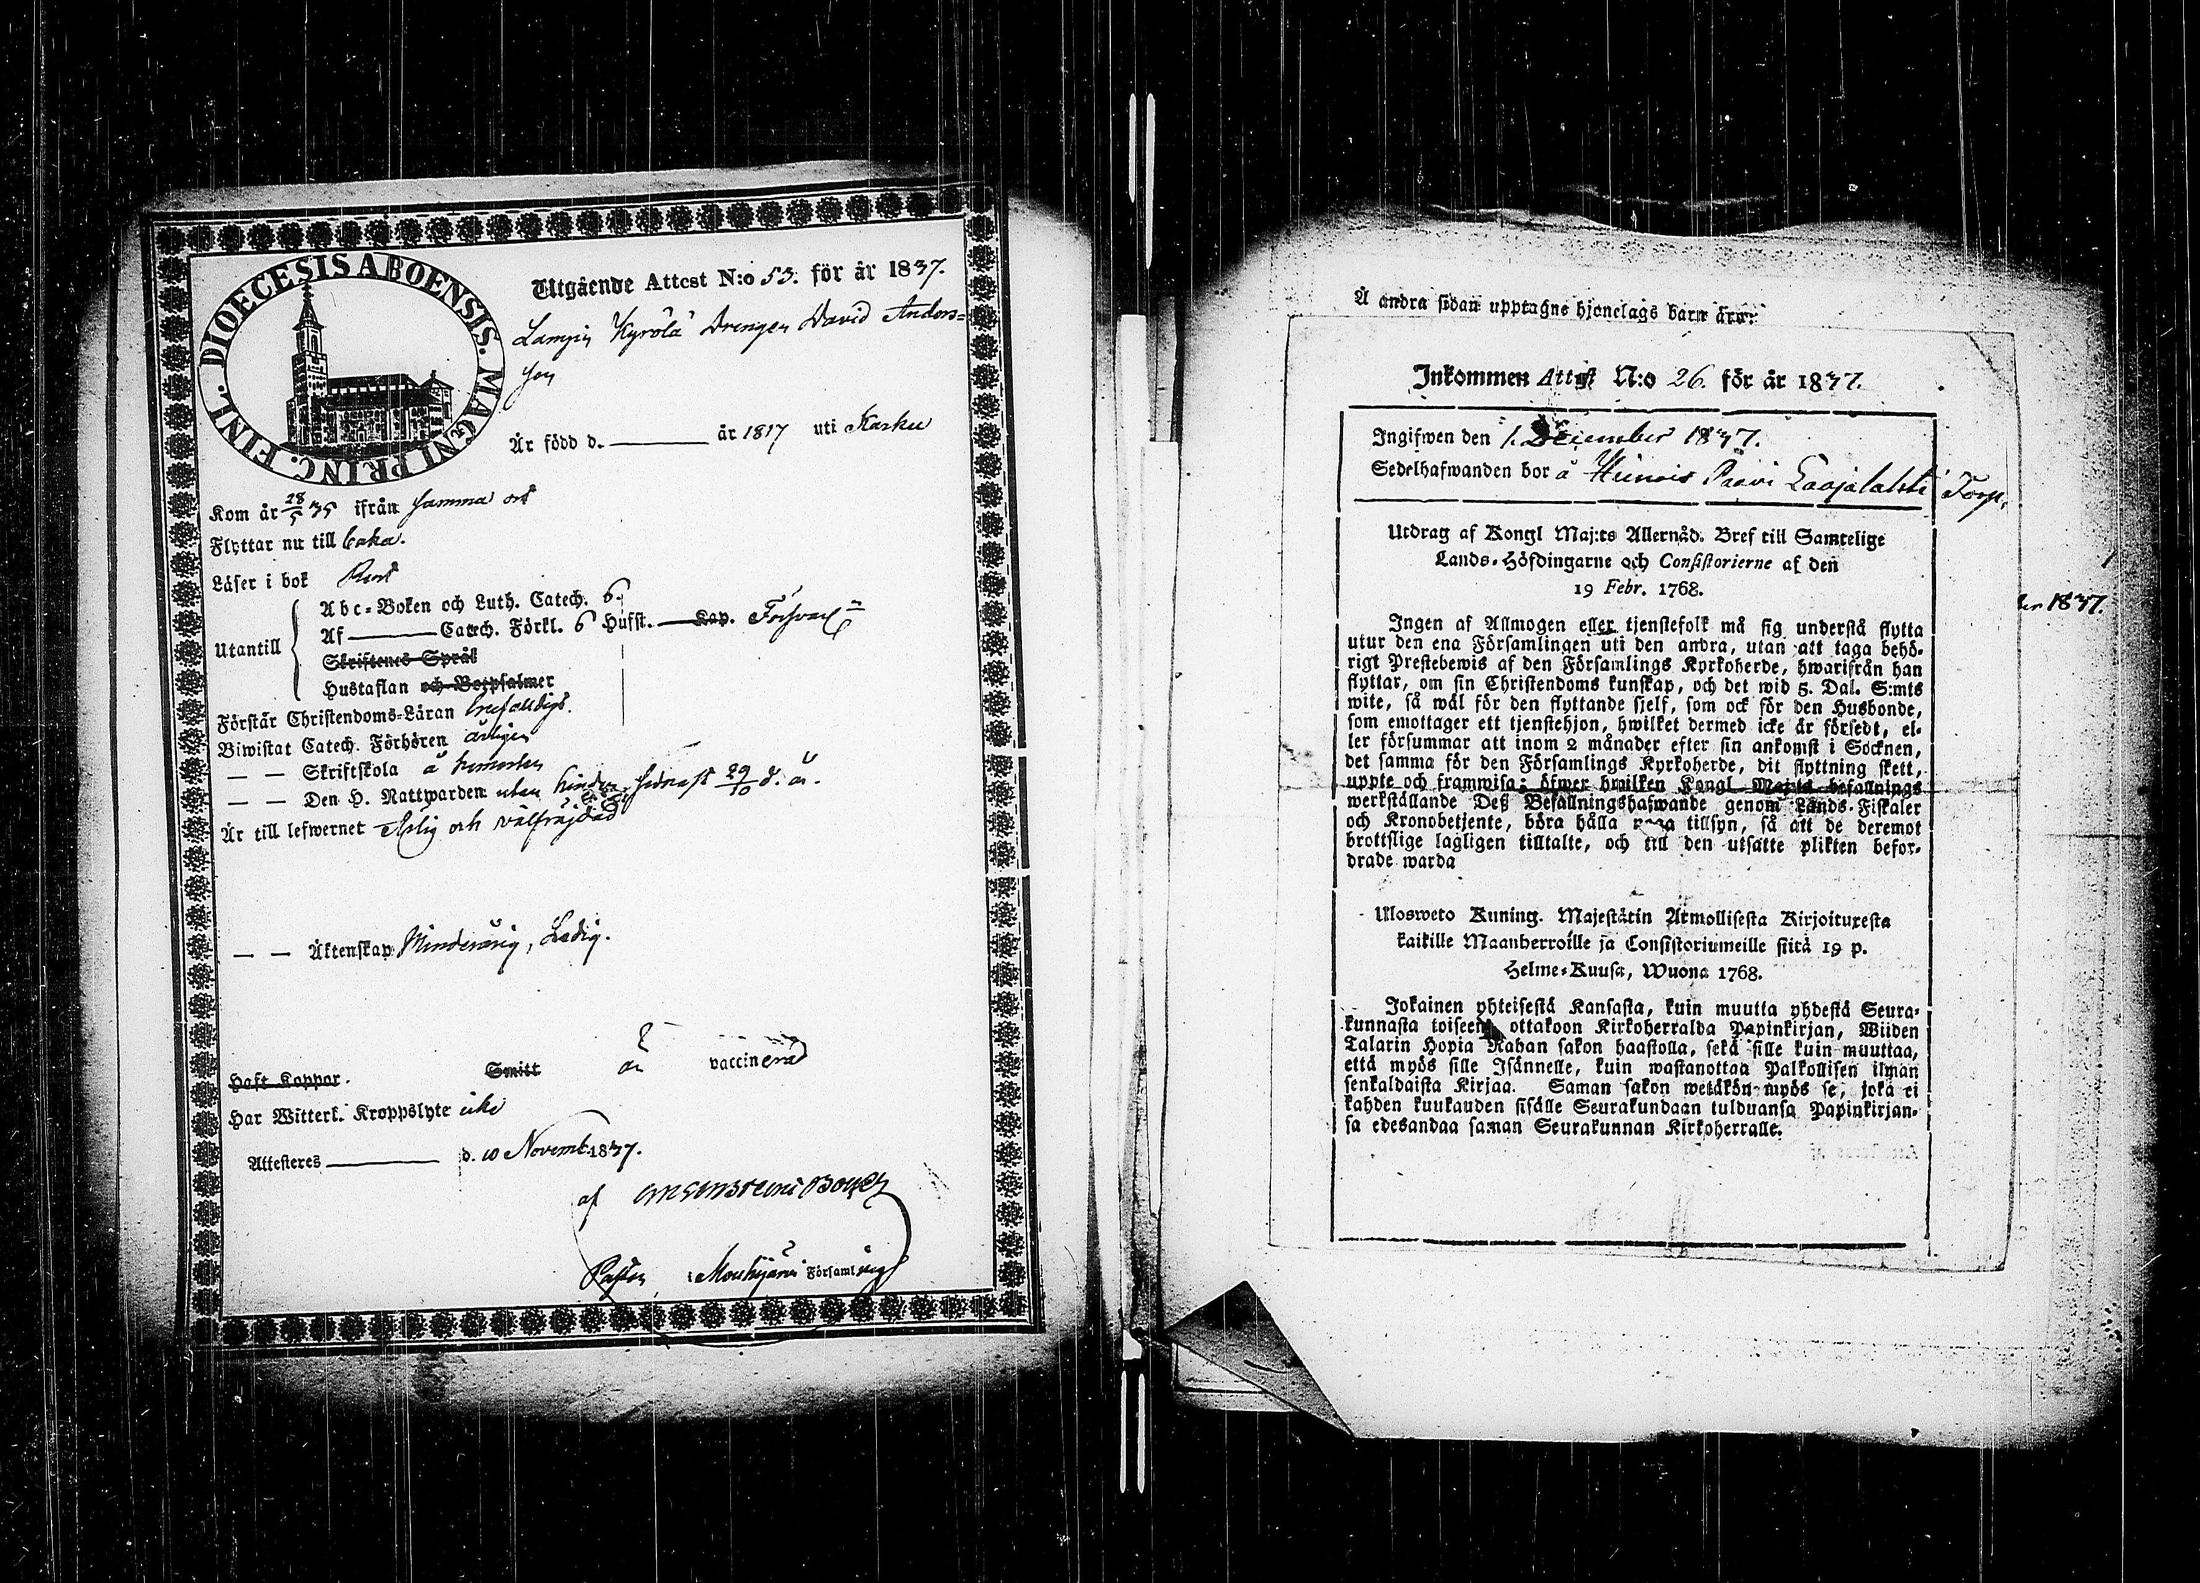 DIOECESIS ABOENSIS. MAGNI PRINC. FINL.
Utgående Attest N:o 53. för år 1837.
Lampis Kyrölä Drengen David Anders=
son
Är född d. ——— år 1817 uti Karku
Kom år 28/5 35 ifrån samma ort
Flyttar nu till
Läser i bok Rent
Utantill
Abc-Boken och Luth. Catech. 6.
Af ——— Catech. Förkl. 6 Husst. Kap. Försvarl
Skriftenes Språk
Hustaflan och Botpsalmer
Förstår Christendoms-Läran enfaldigt.
Biwistat Catech. Förhören årligen
— — Skriftskola å hemorten
— — Den H. Nattwarden utan hinder sednast 29/10 d. å.
Är till lefwernet Ärlig och välfräjdad
— — Äktenskap Minderårig, Ledig.
Haft Koppor. Smitt är vaccinerad
Har Witterl. Kroppslyte icke
Attesteres ——— d. 10 Novemb. 1837.
af
Pastor i Mouhijärvi Församling
Å andra sidan upptagne hjonelags barn äro:
Inkommen Attest N:o 26. för år 1837.
Ingifwen den 1. December 1837.
Sedelhafwanden bor å Heinois Paavi Laajalahti Torp.
Utdrag af Kongl Maj:ts Allernåd. Bref till Samtelige
Lands-Höfdingarne och Consistorierne af den
19 Febr. 1768.
Ingen af Allmogen eller tjenstefolk må sig understå flytta
utur den ena Församlingen uti den andra, utan att taga behö-
rigt Prestebewis af den Församlings Kyrkoherde, hwarifrån han
flyttar, om sin Christendoms kunskap, och det wid 5. Dal. S:mts
wite, så wäl för den flyttande sjelf, som ock för den Husbonde,
som emottager ett tjenstehjon, hwilket dermed icke är försedt, el-
ler försummar att inom 2 månader efter sin ankomst i Socknen,
det samma för den Församlings Kyrkoherde, dit flyttning skett,
uppte och framwisa; öfwer hwilken Kongl Maj:ts befallnings
werkställande Deß Befallningshafwande genom Lands-Fiskaler
och Kronobetjente, böra hålla noga tillsyn, så att de deremot
brottslige lagligen tilltalte, och till den utsatte plikten befor-
drade warda
Ulosweto Kuning. Majestätin Armollisesta Kirjoituxesta
kaikille Maanherroille ja Consistoriumeille siitä 19 p.
Helme-Kuusa, Wuona 1768.
Jokainen yhteisestä Kansasta, kuin muutta yhdestä Seura-
kunnasta toiseen, ottakoon Kirkoherralda Papinkirjan, Wiiden
Talarin Hopia Rahan sakon haastolla, sekä sille kuin muuttaa,
että myös sille Isännelle, kuin wastanottaa Palkollisen ilman
senkaldaista Kirjaa. Saman sakon wetäkön myös se, joka ei
kahden kuukauden sisälle Seurakundaan tulduansa Papinkirjan-
sa edesandaa saman Seurakunnan Kirkoherralle.
1837.